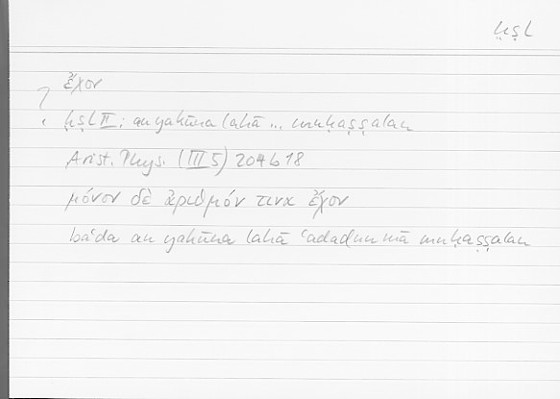 ḥṣl
ἔχον
ḥṣl II: an yakūna lahā ... muḥaṣṣalan
Arist. Phys. (III 5) 204b18
μόνον δὲ ἀριθμόν τινα ἔχον
ba'da an yakūna lahā ʿadadun mā muḥaṣṣalan